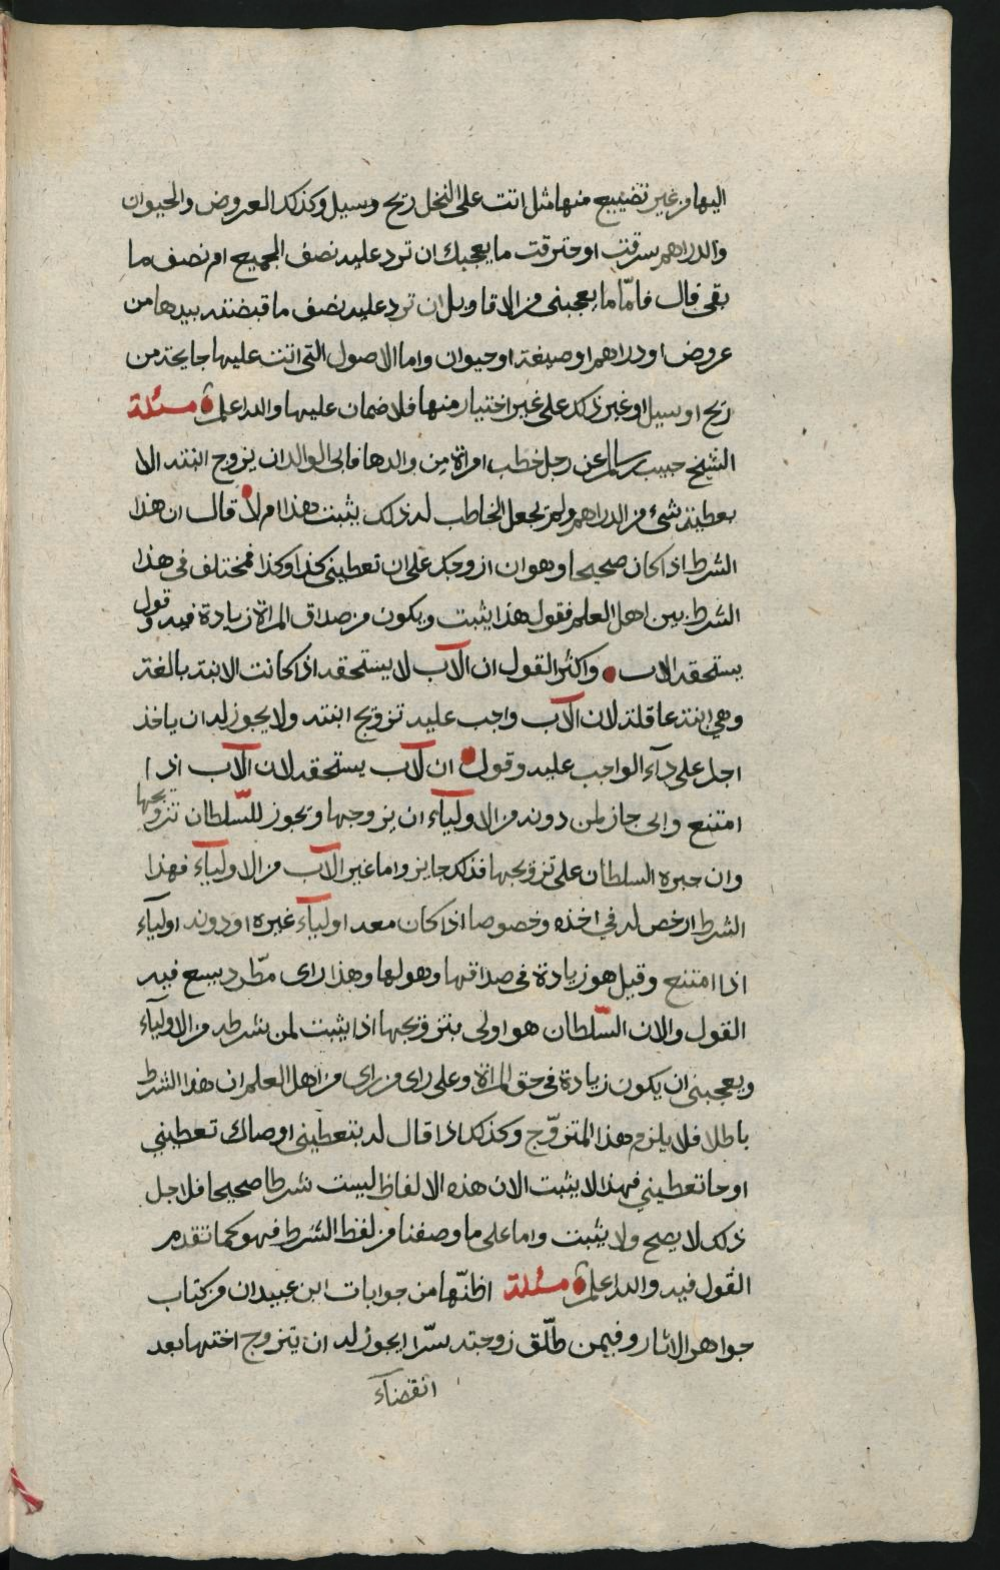 اليها من غير تضييع منها مثل اتت على النخل ريح وسيل وكذلك العروض والحيوان
والدراهم سرقت او حترقت ما يعجبك ان ترد عليه نصف الجميع ام نصف ما
بقي قال فامّا ما يعجبني من الاقاويل ان ترد عليه نصف ما قبضته بيدها من
عروض او دراهم او صيغة او حيوان واما الاصول التي اتت عليها جايحة من
ريح او سيل او غير ذلك على غير اختيار منها فلا ضمان عليها والله اعلم مسئلة
الشيخ حبيب بن سالم عن رجل خطب امراة من والدها فابى الوالد ان يزوج ابنته الا
بعطية شيء من الدراهم ولم يجعل الخاطب له ذلك يثبت هذا ام لا قال ان هذا
الشرط اذا كان صحيحا وهو ان ازوجك على ان تعطيني كذا وكذا فمختلف في هذا
الشرط بين اهل العلم فقول هذا يثبت ويكون من صداق المراة زيادة فيه وقول
يستحقه الاب واكثر القول ان الآب لا يستحقه اذا كانت الابنة بالغة
وهي ابنة عاقلة لان الآب واجب عليه تزويج ابنته ولا يجوز له ان ياخذ
اجل على دآء الواجب عليه وقول ان لآب يستحقه لان الآب اذا
امتنع وابى جاز لمن دونه من الاوليآء ان يزوجها ويجوز للسّلطان تزويجها
وان جبره السلطان على تزويجها فذلك جايز واما غير الآب من الاوليآء فهذا
الشرط ارخص له في اخذه وخصوصا اذا كان معه اوليآء غيره او دونه اوليآء
اذا امتنع وقيل هو زيادة في صداقها وهو لها وهذا راى مطّرد يسع فيه
القول والان السّلطان هو اولى بتزويجها اذا يثبت لمن شرطه من الاوليآء
ويعجبني ان يكون زيادة في حق المراة وعلى راى من راى من اهل العلم ان هذا الشرط
باطلا فلا يلزم هذا المتزوّج وكذلك اذا قال له بتعطيني اوصاك تعطيني
او حا تعطيني فهذا لا يثبت الان هذه الالفاظ ليست شرطا صحيحا فلاجل
ذلك لا يصح ولا يثبت واما على ما وصفنا من لفظ الشرط فهو كما تقدم
القول فيه والله اعلم مسئلة اظنّها من جوابات ابن عبيدان من كتاب
جواهر الاثار وفيمن طلّق زوجته سّرا ايجوز له ان يتزوج اختها بعد
انقضآء